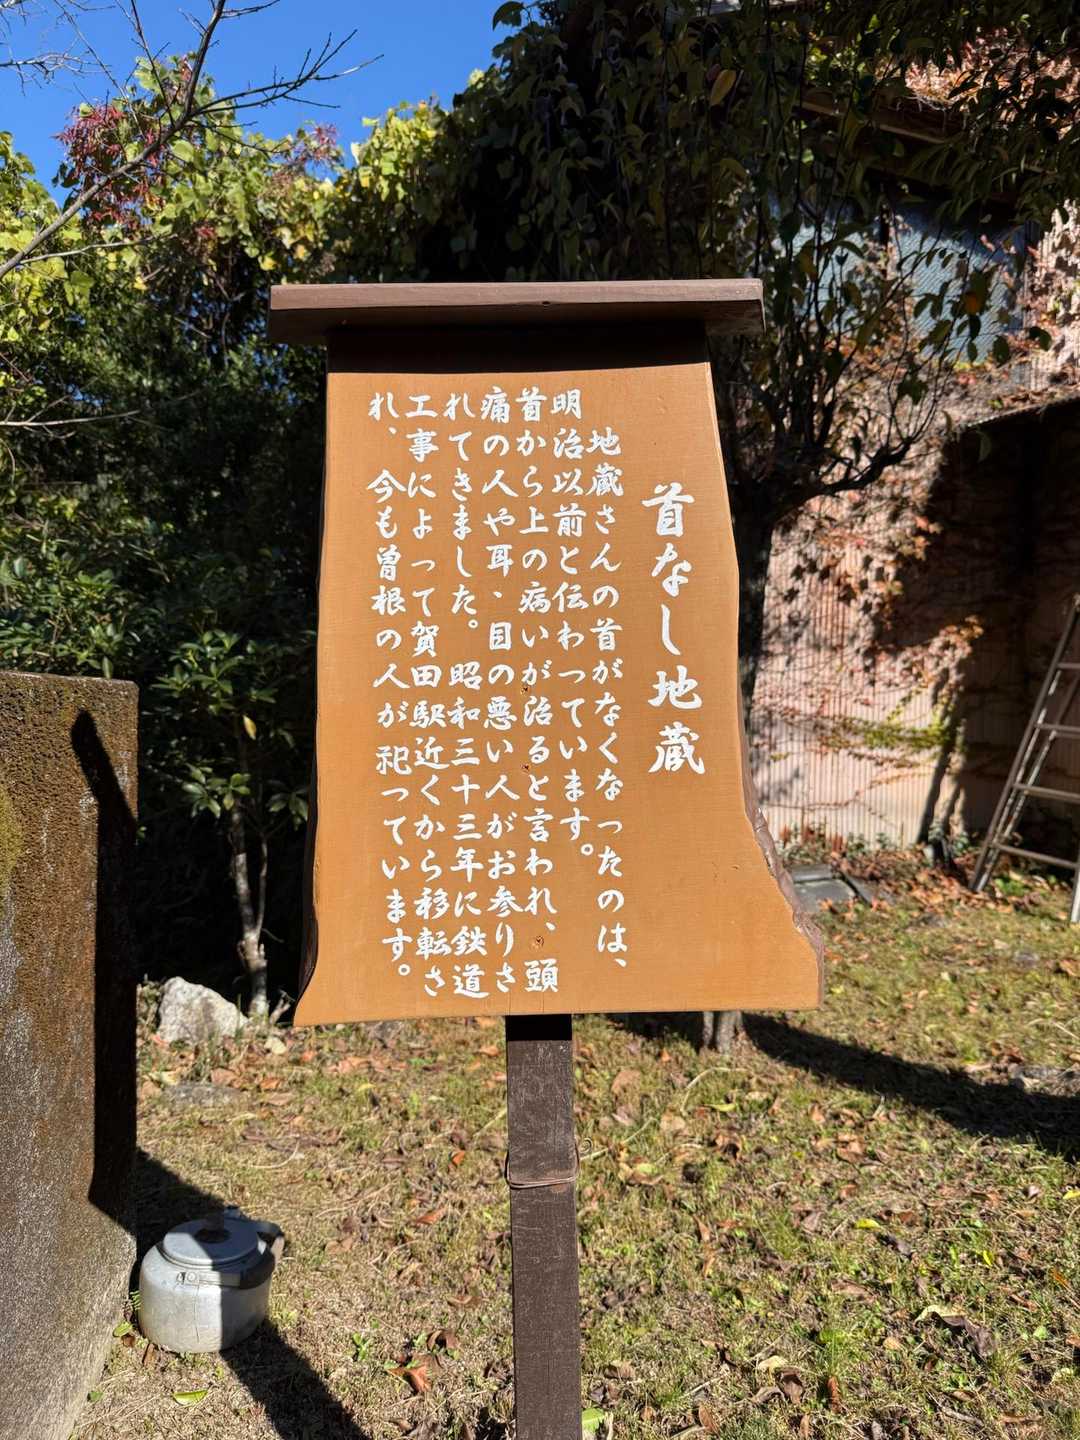 首なし地蔵
地蔵さんの首がなくなったのは、
明治以前と伝わっています。
首から上の病いが治ると言われ、頭
痛の人や耳、目の悪い人がお参りさ
れてきました。昭和三十三年に鉄道
工事によって賀田駅近くから移転さ
れ、今も曽根の人が祀っています。